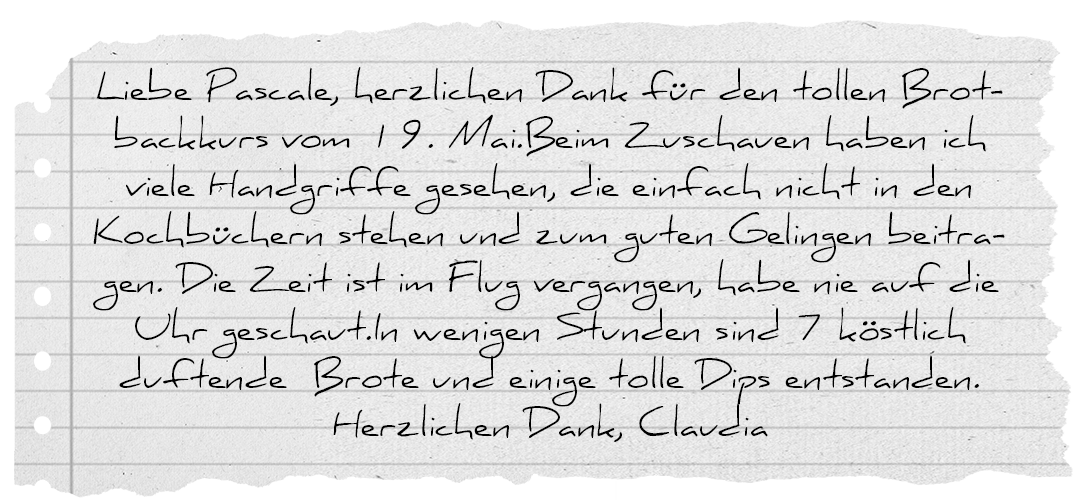 Liebe Pascale, herzlichen Dank für den tollen Brot-
backkurs vom 19. Mai.Beim Zuschauen haben ich
viele Handgriffe gesehen, die einfach nicht in den
Kochbüchern stehen und zum guten Gelingen beitra-
gen. Die Zeit ist im Flug vergangen, habe nie auf die
Uhr geschaut.In wenigen Stunden sind 7 köstlich
duftende Brote und einige tolle Dips entstanden.
Herzlichen Dank, Claudia